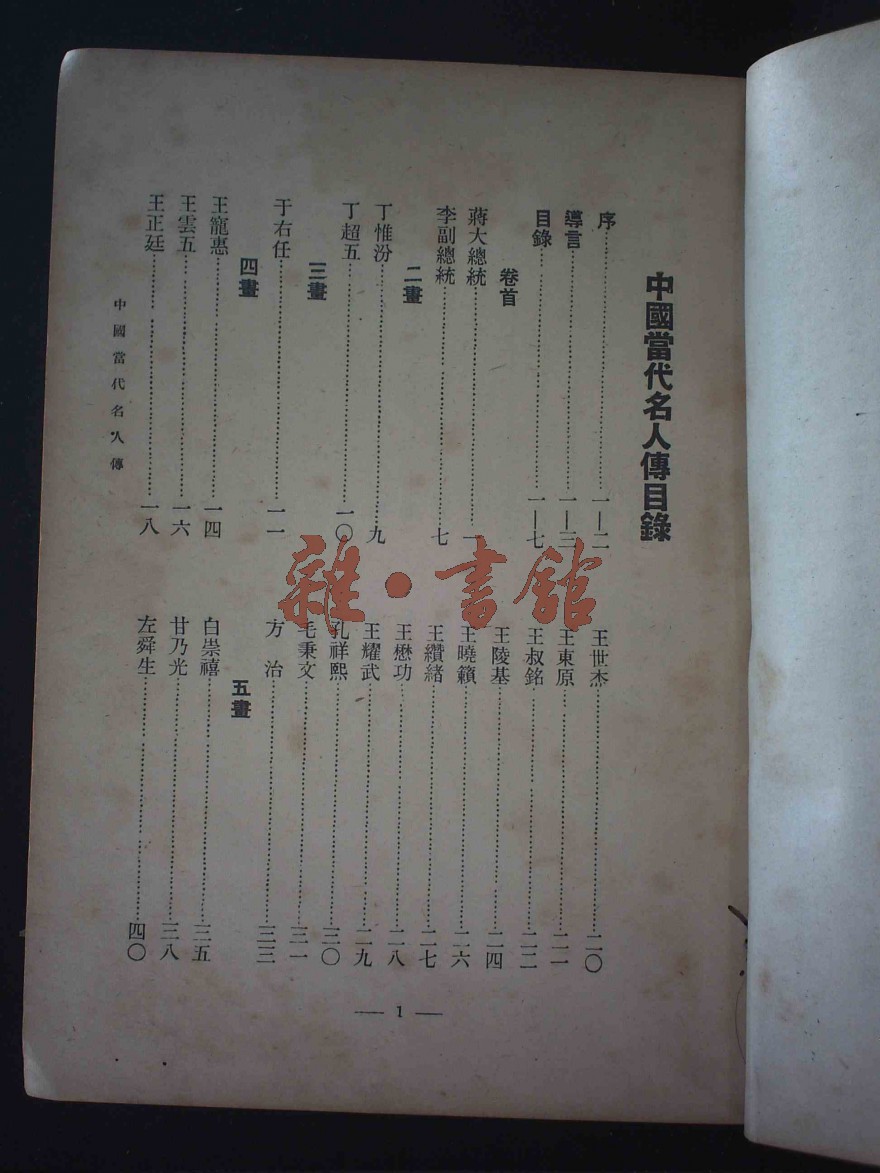 中國當代名人傳目錄
序……一—二
導言……一—三
目錄……一—七
卷首
蔣大總統……一
李副總統……七
二畫
丁惟汾……九
丁超五……一〇
三畫
于右任……一一
四畫
王寵惠……一四
王雲五……一六
王正廷……一八
王世杰……二〇
王東原……二一
王叔銘……二二
王陵基……二四
王曉籟……二六
王纘緒……二七
王懋功……二八
王耀武……二九
孔祥熙……三〇
毛秉文……三一
方治……三三
五畫
白崇禧……三五
甘乃光……三八
左舜生……四〇
中國當代名人傳
— 1 —
雜·書館